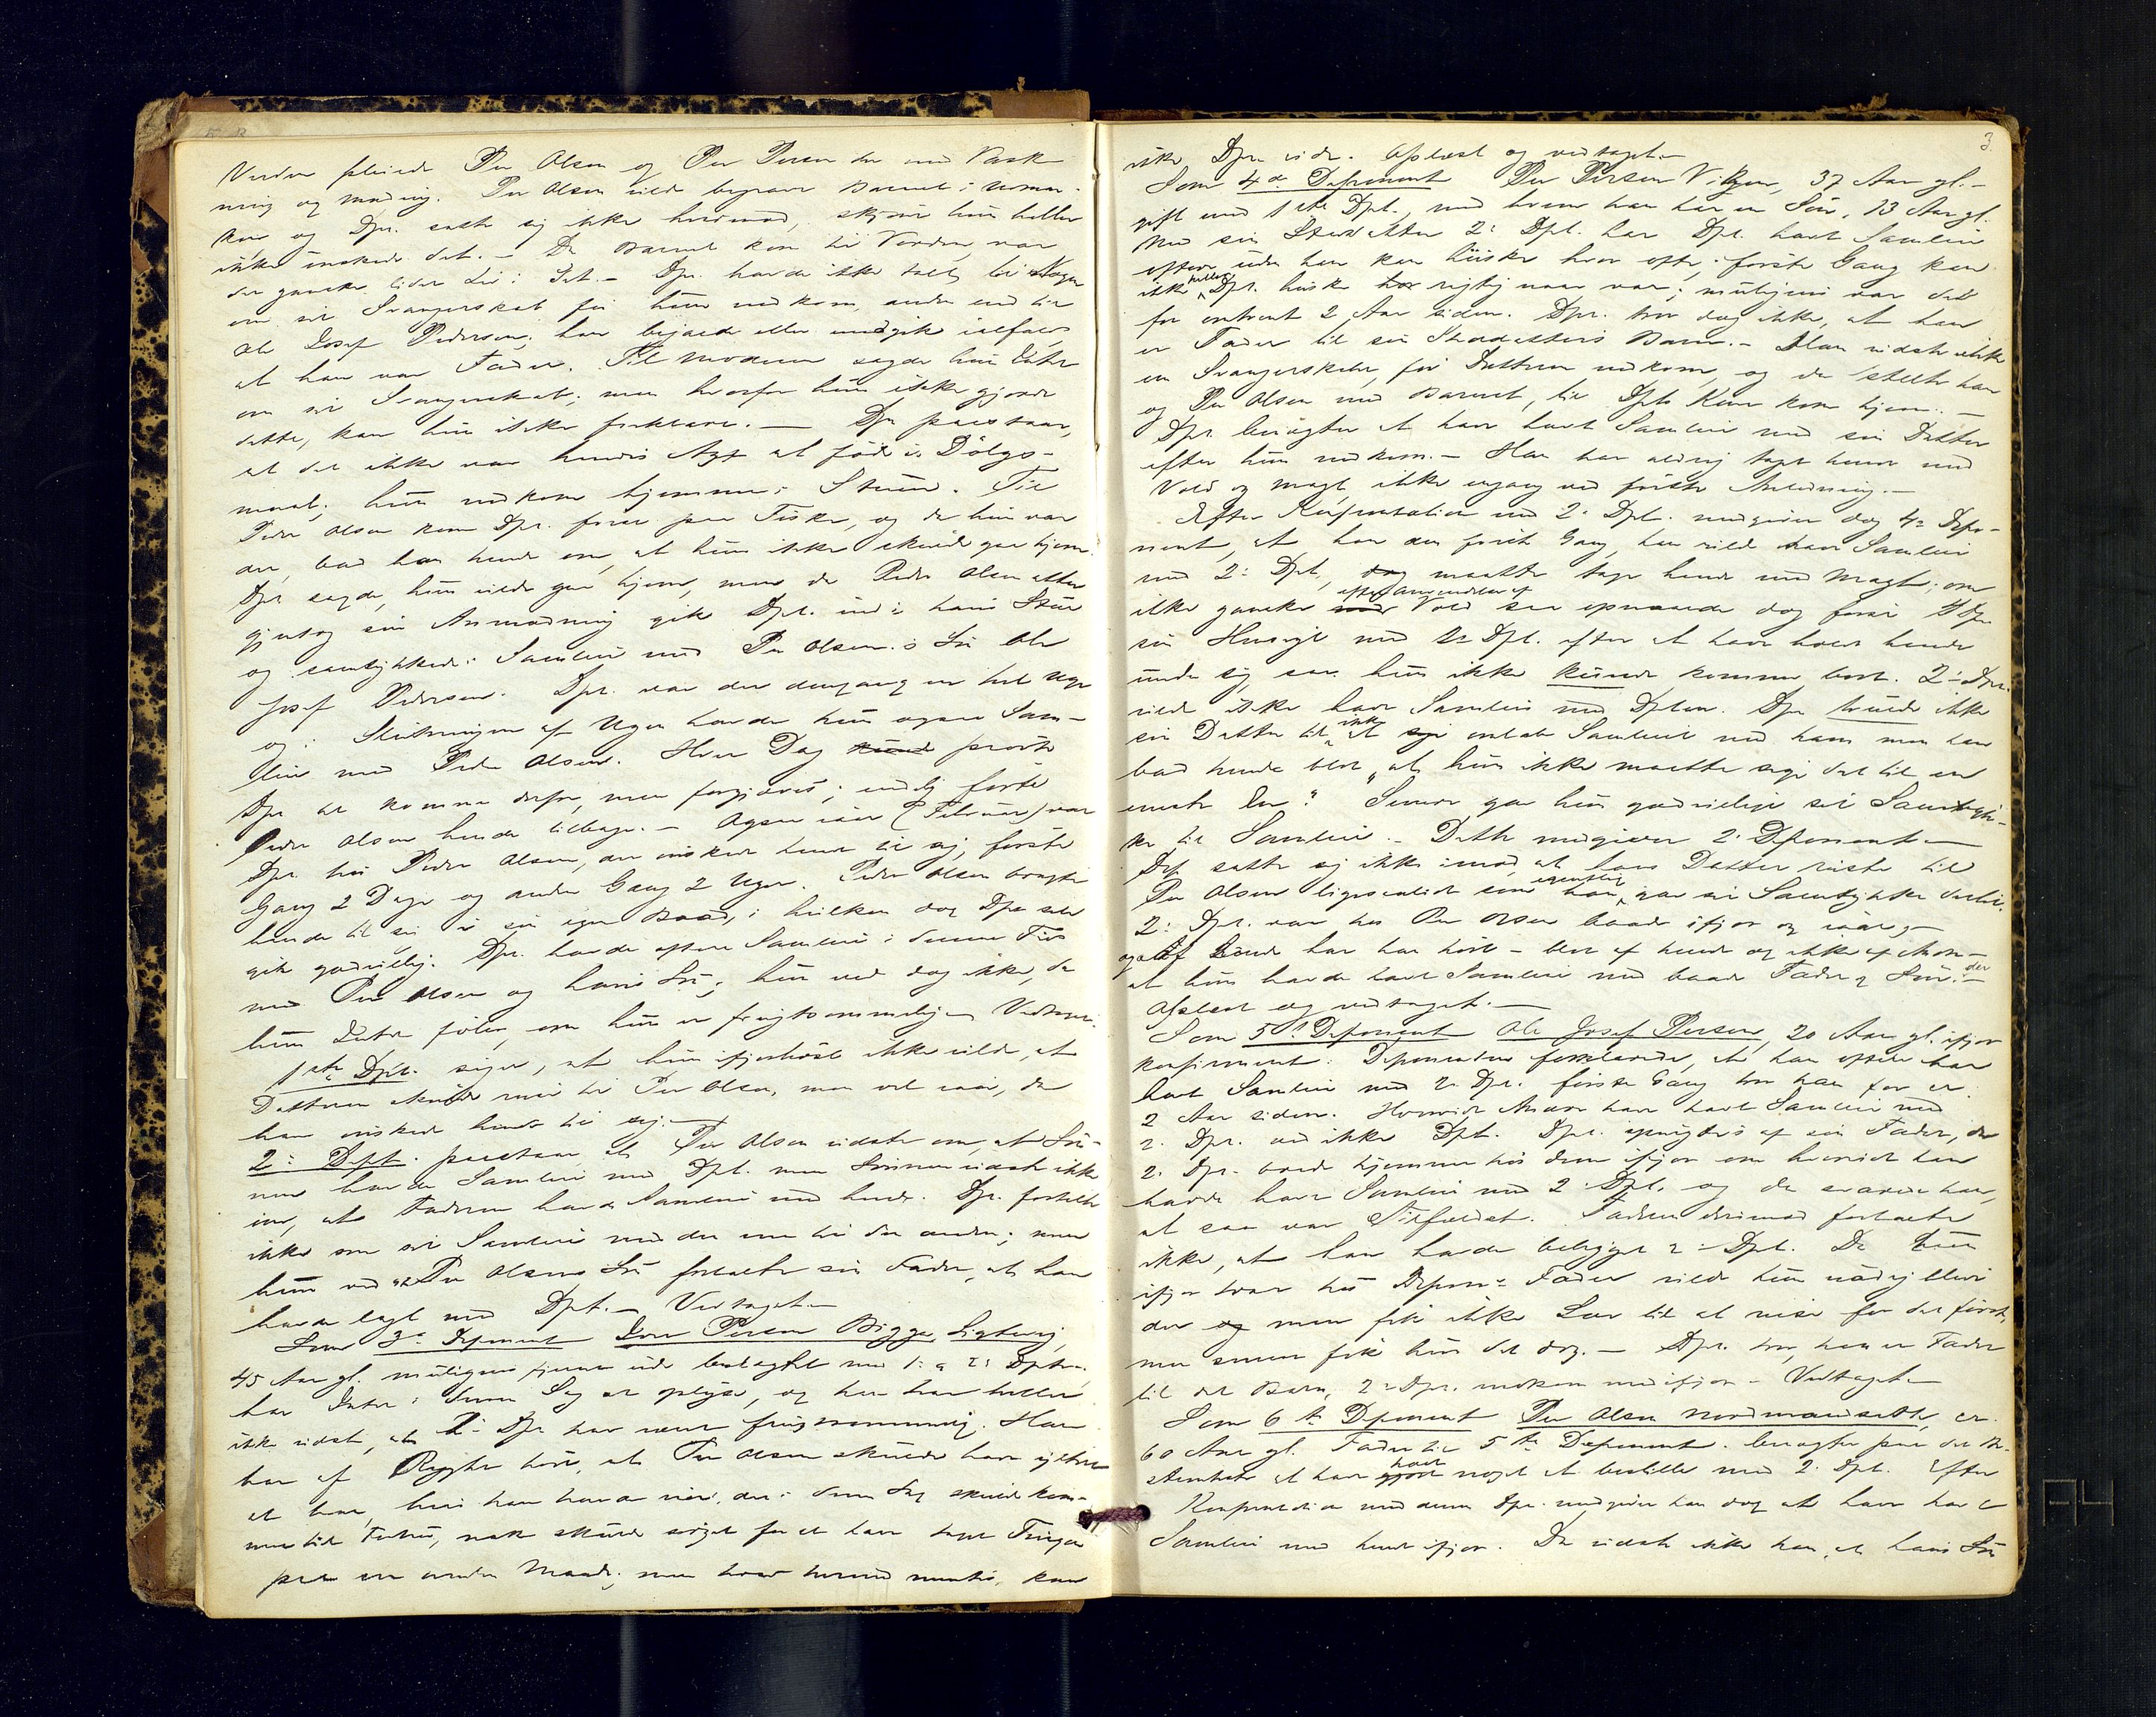 Verden pleiede Per Olsen og Per Persen den med Vask
ning og Mading. Per Olsen vilde begrave Barnet i Umar-
ken og Dpr. satte sig ikke herimod, skjönt hun heller
ikke önskede det. – Da Barnet kom til Verden, var
der ganske lidet Liv i det. – Dpr. havde ikke talt til Nogen
om sit Svangerskab för hun nedkom, anden end til
Ole Josef Pedersen; han bejaede eller medgik ialfald
at han var Fader. Til Moderen sagde hun Intet
om sit Svangerskab; men hvorfor hun ikke gjorde
dette, kan hun ikke forklare. – Dpr. paastaar,
at det ikke var hendes Agt at föde i Dölgs-
maal; hun nedkom hjemme i Stuen. Til
Peder Olsen kom Dpr. först paa Fiske, og da hun var
der, bad han hende om, at hun ikke skulde gaa hjem.
Dpr sagde, hun vilde gaa hjem, men da Peder Olsen atter
gjentog sin Anmodning gik Dpt. ind i hans Stue
og samtykkede i Samleie med Per Olsens Sön Ole
Josef Pedersen. Dpt. var der dengang en hel Uge
og i Slutningen af Ugen havde hun ogsaa Sam-
leie med Peder Olsen. Hver Dag prövte
Dpr at komme derfra, men forgjæves; endelig förte
Peder Olsen hende tilbage. – Ogsaa iaar (Februar) var
Dpr hos Peder Olsen, der önskede hende til sig; förste
Gang 2 Dage og anden Gang 2 Uger. Peder Olsen bragte
hende til sig i sin egen Baad, i hvilken dog Dpr selv
gik godvillig. Dpr. havde oftere Samleie i denne Tid
med Per Olsen og hans Sön; hun ved dog ikke, da
hun Intet föler, om hun er frugtsommelig. – Vedtaget.
1ste Dpt. siger, at hun ifjorhöst ikke vilde, at
Datteren skulde reise til Per Olsen, men vel iaar, da
han önskede hende til sig. –
2: Dept. paastaar at Per Olsen vidste om, at Sön-
nen havde Samleie med Dpt. men Sönnen vidste ikke
om, at Faderen havde Samleie med hende. Dpr. fortalte
ikke om sit Samleie med den ene til den anden; men
hun ved at Per Olsens Sön fortalte sin Fader, at han
havde lagt med Dpt. – Vedtaget. –
Som 3de Deponent Iver Persen Bigga Sigtberg,
45 Aar gl. muligens fjernt ude beslægtet med 1: og 2: Dptn.
har Intet i denne Sag at oplyse, og han har heller
ikke vidst, at 2: Dpr har været frugtsommelig. Han
har af Rygte hört, at Per Olsen skulde have yttret
at han, hvis han havde vidst, at denne Sag skulde kom-
me til Futen, nok skulde sörget for at have tagt Tingen
paa en anden Maade; men hvad hermed mentes, kan
3.
ikke Dpr. vide. Oplæst og vedtaget. –
Som 4de Deponent Per Persen Vitgen, 37 Aar gl. –
gift med 1ste Dpt., med hvem han har en Sön, 13 Aar gl.
Med sin Steddatter 2: Dpt. har Dpt. havt Samleie
oftere uden han kan huske hvor ofte; förste Gang kan
ikke heller Dpr. huske rigtig naar var; muligens var det
for omtrent 2 Aar siden. Dpr. tror dog ikke, at han
er Fader til sin Steddatters Barn. – Han vidste ikke
om Svangerskabet, för Datteren nedkom, og da stelte han
og Per Olsen med Barnet, til Dpts Kone kom hjem. –
Dpr. benægter at have havt Samleie med sin Datter
efter hun nedkom. – Han har aldrig tagt hende med
Vold og Magt, ikke engang ved förste Anledning. –
Efter Konfrontation med 2: Dpt. medgiver dog 4de Depo-
nent, at han den förste Gang, han vilde have Samleie
med 2: Dpt., maatte tage hende med Magt; om
ikke ganske efter Anvendelse af Vold saa opnaaede dog först 4 Dpr
sin Hensigt med 2: Dpt. efter at have holdt hende
under sig, saa hun ikke kunde komme bort. 2: Dpr.
vilde ikke have Samleie med Dpten. Dpr truede ikke
sin Datter til ikke at omtale Samleiet med ham men han
bad hende blot „at hun ikke maatte sige det til en
eneste En“. Senere gav hun godvillige sit Samtyk-
ke til Samleie. – Dette medgiver 2: Deponent. –
Dep satte sig ikke imod, at hans Datter reiste til
Per Olsen ligesaalidt som han egentlig gav sit Samtykke dertil.
2: Dpt. var hos Per Olsen baade ifjor og iaar, –
og af hende har han hört – blot af hende og ikke af Andre –
at hun havde havt Samleie med baade Fader og Sön. –
Oplæst og vedtaget. –
Som 5te Deponent Ole Josef Persen, 20 Aar gl. ifjor
konfirmeret. Deponenten forklarede, at han oftere har
havt Samleie med 2: Dpt. förste Gang tror han for er
2 Aar siden. Hvorvidt Andre have havt Samleie med
2: Dpr. ved ikke Dpt. Dpr. spurgtes af sin Fader, da
2: Dpr. var hjemme hos dem ifjor om hvorvidt han
havde havt Samleie med 2: Dpt. og da svarede han,
at saa var Tilfældet. Faderen derimod fortalte
ikke, at han havde beligget 2: Dpt. Da hun
ifjor var hos Depon:s Fader vilde hun nödig blive
der men fik ikke Lov til at reise for det förste,
men senere fik hun det dog. – Dpr. tror, han er Fader
til det Barn, 2: Dpr. nedkom med ifjor. – Vedtaget. –
Som 6te Deponent Per Olsen Nordmandsæth, er
60 Aar gl. Fader til 5te Deponent. benægter paa det Be-
stemteste at have havt noget at bestille med 2: Dpt. Efter
Konfrontation med denne Dpr. medgiver han dog at have havt
Samleie med hende ifjor. Da vidste ikke han, at hans Sön